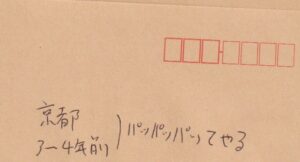 京都
3〜4年前 ) パッパッパッてやる